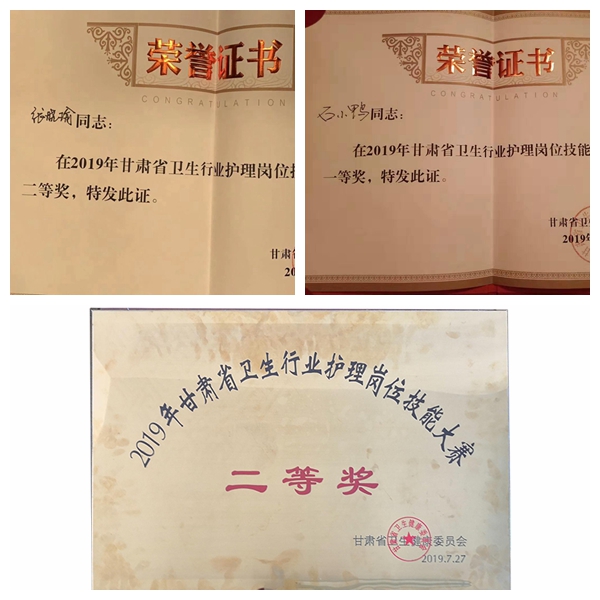 荣誉证书
CONGRATULATION
张晓瑜同志：
在2019年甘肃省卫生行业护理岗位技
二等奖，特发此证。
甘肃省
20
荣誉证书
CONGRATULATION
石小鸭同志：
在2019年甘肃省卫生行业护理岗位技能
一等奖，特发此证。
甘肃省卫
2019年
2019年甘肃省卫生行业护理岗位技能大赛
二等奖
甘肃省卫生健康委员会
2019.7.27